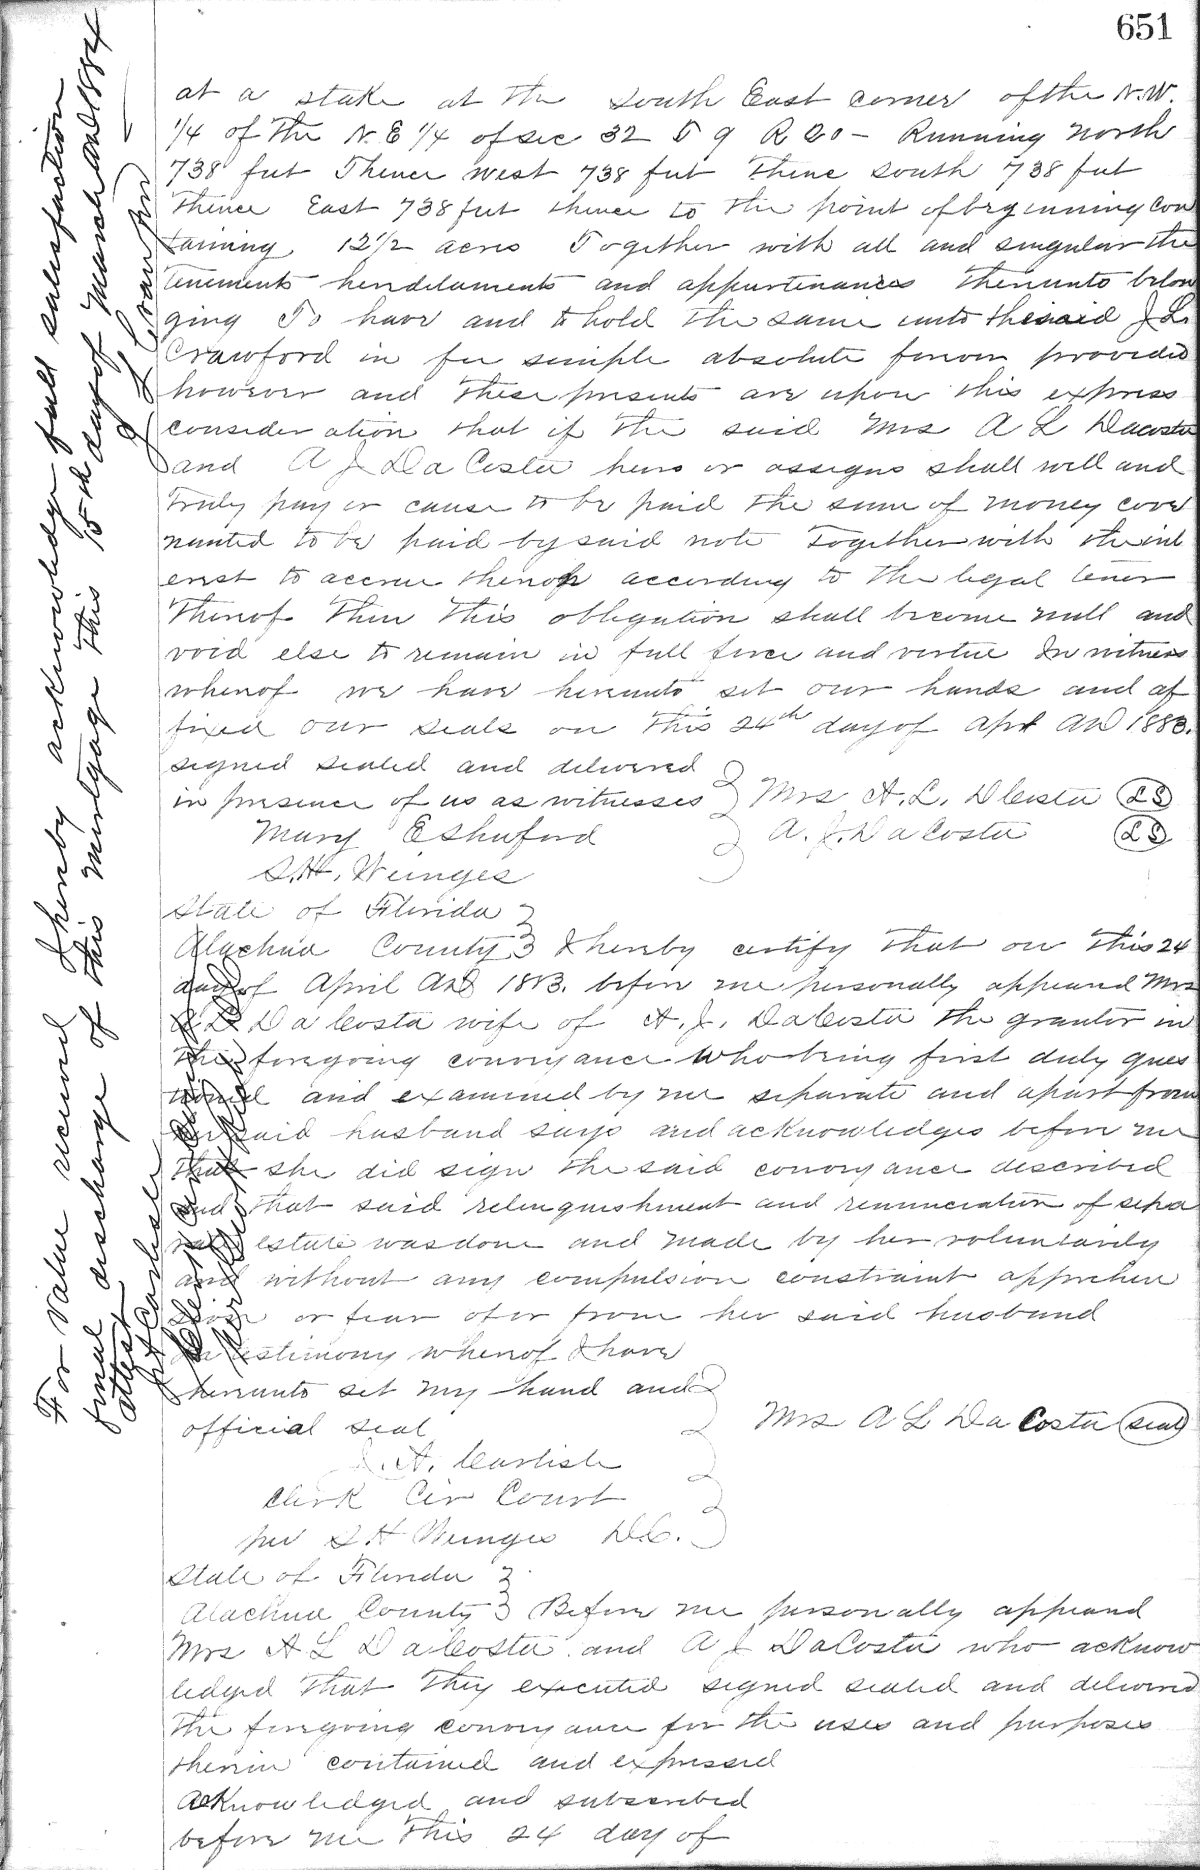 651
at a stake at the South East corner of the N.W.
1/4 of the N.E 1/4 of sec 32 T 9 R 20 - Running north
738 feet Thence west 738 feet Thenc south 738 feet
thence East 738 feet thence to the point of beginning con
taining 12 1/2 acres Together with all and singular the
tenements herditaments and appurtenances thereunto belon
ging To have and to hold the same unto the said J L.
Crawford in fee simple absolute forever provided
however and these presents are upon this express
consideration that if the said Mrs A L Dacosta
and A J DaCosta heirs or assigns shall well and
truly pay or cause to be paid the sum of money cove
nanted to be paid by said note Together with the int
erest to accrue thereof according to the legal tener
thereof Then this obligation shall become null and
void else to remain in full force and vertue In witness
whereof we have hereunto set our hands and af
fixed our seals on this 24th day of Apr AD 1883.
signed sealed and delivered
in presence of us as witnesses Mrs A. L. DCosta LS
Mary E Shuford A. J. DaCosta LS
S. H. Wienges
State of Florida
Alachua County I hereby certify that on this 24
day of April AD 1883. before me personally appeared Mrs
A L DaCosta wife of A. J. DaCosta the grantor in
the foregoing conveyance who being first duly ques
tioned and examined by me separate and apart from
her said husband says and acknowledges before me
that she did sign the said conveyance described
and that said relenquishment and renunciation of sepa
rate estate was done and made by her voluntarily
and without any compulsion constraint apprehen
sion or fear of or from her said husband
In testimony whereof I have
hereunto set my hand and
official seal Mrs A L DaCosta seal
J. A. Carlisle
Clerk Cir Court
per S H Wienges D.C.
State of Florida
Alachua County Before me personally appeard
Mrs A L DaCosta and A J DaCosta who acknow
ledged that they executed signed sealed and delivered
the foregoing conveyance for the uses and purposes
therein contained and expressed
Acknowledged and subscribed
before me this 24 day of
For value received I hereby acknowledge full satisfaction
final discharge of this mortgage this 15th day of March AD 1884
attest J L Crawford
J A Carlisle
Clerk